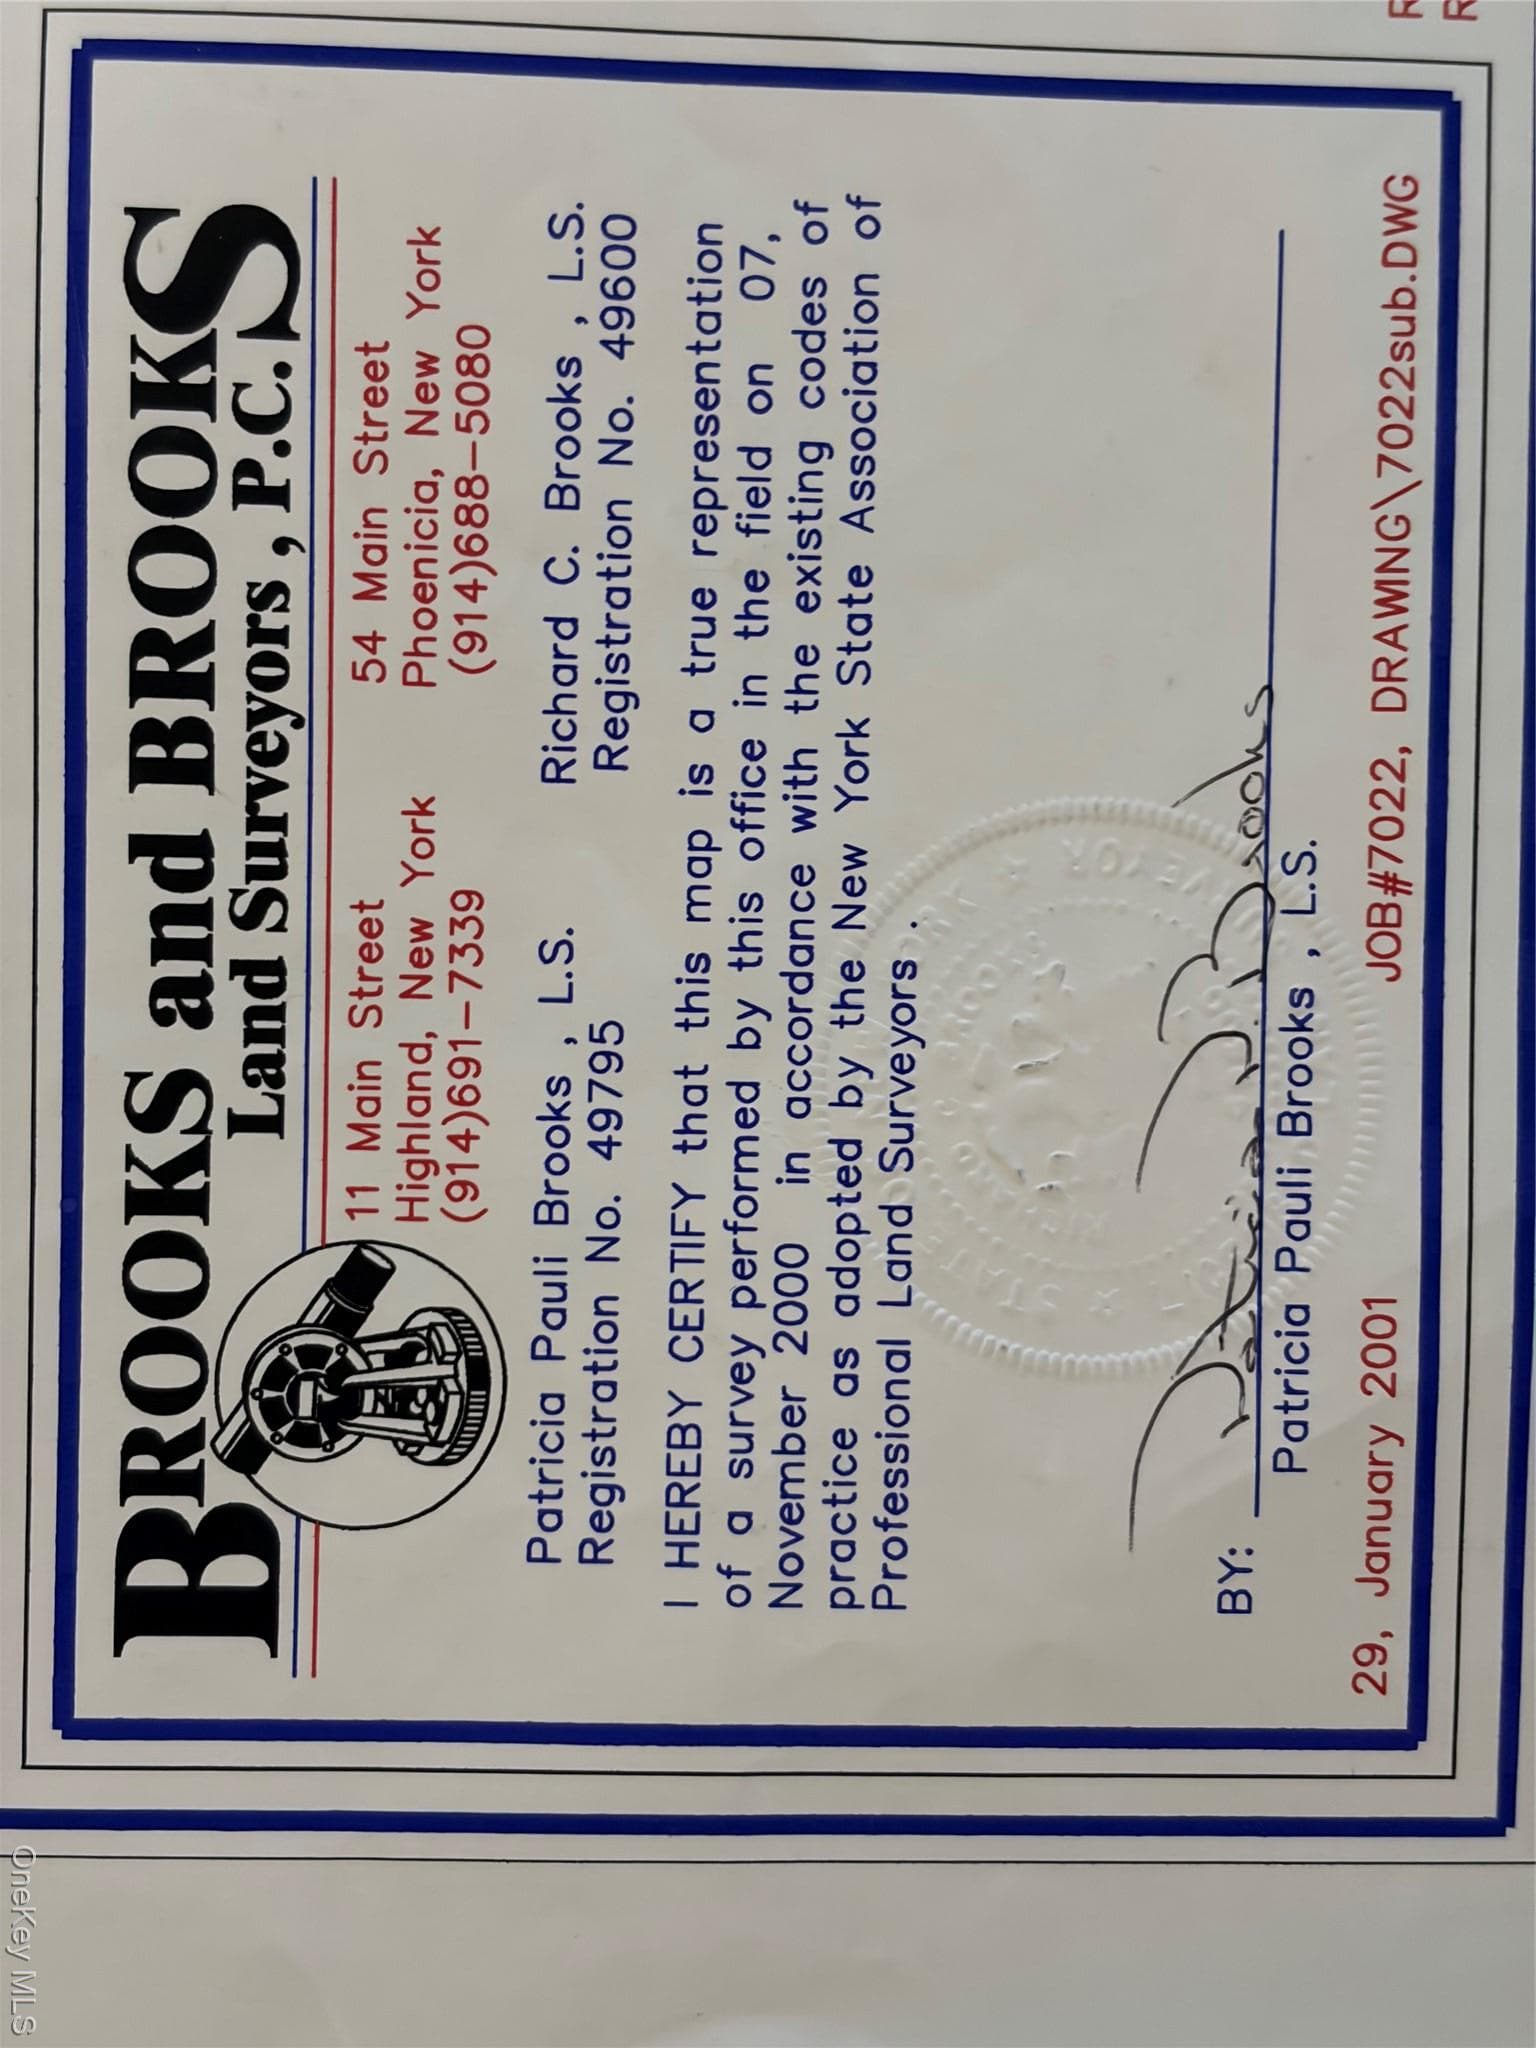 BROOKS and BROOKS
Land Surveyors , P.C.
11 Main Street
Highland, New York
(914)691-7339
54 Main Street
Phoenicia, New York
(914)688-5080
Patricia Pauli Brooks , L.S.
Registration No. 49795
Richard C. Brooks , L.S.
Registration No. 49600
I HEREBY CERTIFY that this map is a true representation
of a survey performed by this office in the field on 07,
November 2000 in accordance with the existing codes of
practice as adopted by the New York State Association of
Professional Land Surveyors .
BY: Patricia P. Brooks
Patricia Pauli Brooks , L.S.
29, January 2001
JOB#7022, DRAWING\7022sub.DWG
OneKey MLS